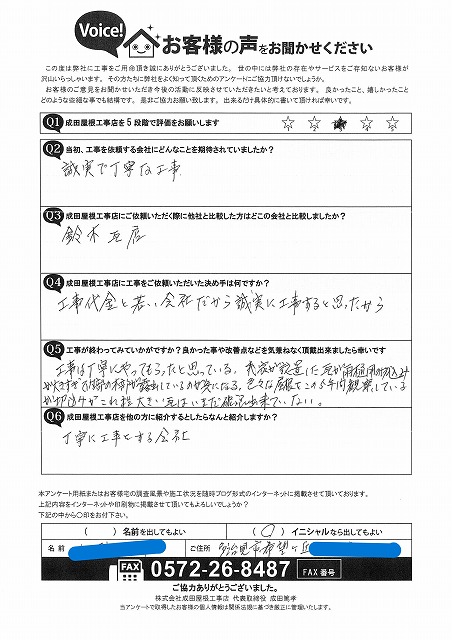 Voice!
お客様の声をお聞かせください
この度は弊社に工事をご用命頂き誠にありがとうございました。世の中には弊社の存在やサービスをご存知ないお客様が
沢山いらっしゃいます。その方たちに弊社をよく知って頂くためのアンケートにご協力頂けないでしょうか。
お客様のご意見をお聞かせいただき今後の活動に反映させていただきたいと考えております。良かったこと、嬉しかったこと
どのような些細な事でも結構です。是非ご協力お願い致します。出来るだけ具体的に書いて頂ければ幸いです。
Q1 成田屋根工事店を5段階で評価をお願いします ☆ ☆ ★ ☆ ☆
Q2 当初、工事を依頼する会社にどんなことを期待されていましたか?
誠実で丁寧な工事
Q3 成田屋根工事店にご依頼いただく際に他社と比較した方はどこの会社と比較しましたか?
鈴木瓦店
Q4 成田屋根工事店に工事をご依頼いただいた決め手は何ですか?
工事代金と若い会社だから誠実に工事すると思ったから
Q5 工事が終わってみていかがですか?良かった事や改善点などを気兼ねなく頂戴出来ましたら幸いです
工事は丁寧にやってもらったと思っている。我家が設置した瓦が
が大きすぎ
が露出しているのが気になる。色々な屋根をこの5年間観察している
が切込みがこれ程大きい瓦はいまだ
出来ていない。
Q6 成田屋根工事店を他の方に紹介するとしたらなんと紹介しますか?
丁寧に工事をする会社
本アンケート用紙またはお客様宅の調査風景や施工状況を随時ブログ形式のインターネットに掲載させて頂いております。
上記内容をインターネットや印刷物に掲載させて頂いてもよろしいでしょうか?
下記の中から〇印をお付下さい。
( )名前を出してもよい (〇)イニシャルなら出してもよい
名前 ご住所 多治見市希望ヶ丘
FAX 0572-26-8487 FAX番号
ご協力ありがとうございました。
株式会社成田屋根工事店 代表取締役 成田篤孝
当アンケートで取得したお客様の個人情報は関係法規に基づき厳正に管理いたします。